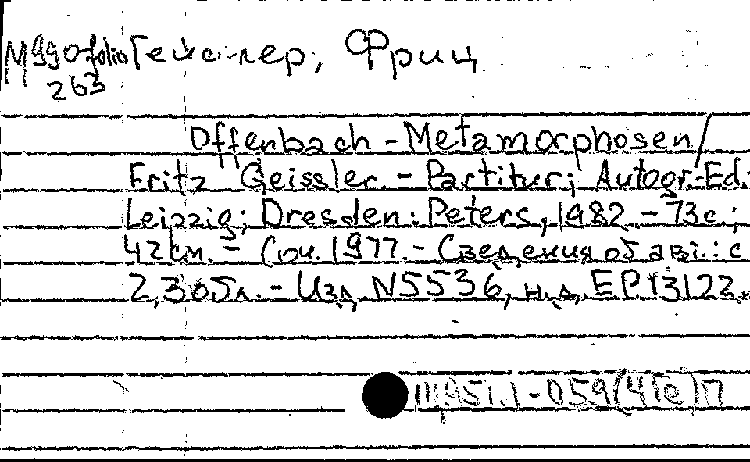 М990-folio Гейслер, Фриц
263
Offenbach-Metamorphosen/
Fritz Geissler. - Partitur; Autogr.-Ed.
Leipzig; Dresden: Peters, 1982 - 73с.;
42см. - Соч. 1977. - Сведения об авт.: с
2, 3 обл. - Изд. N5536, н.д. EP.13122.
Щ951.1-059(4Ге)П